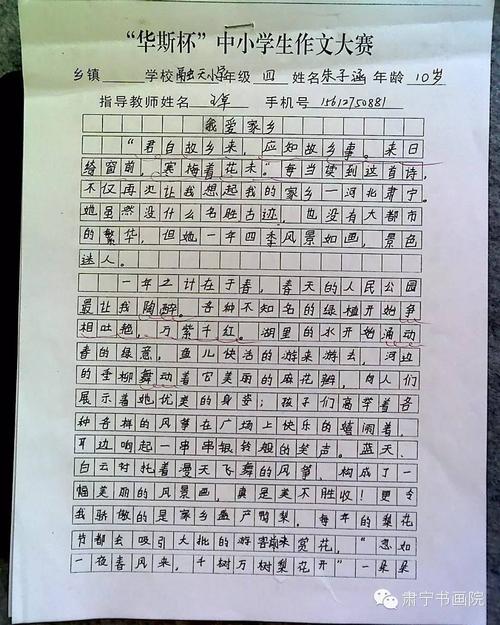 “华斯杯”中小学生作文大赛
乡镇 学校融天小学年级 四 姓名朱子涵年龄 10岁
指导教师姓名 手机号 15612750881
我爱家乡
“君自故乡来,应知故乡事。来日
绮窗前,寒梅着花未。”每当读到这首诗,
不仅再次让我想起我的家乡—河北肃宁。
她虽然没什么名胜古迹,也没有大都市
的繁华,但她一年四季风景如画,景色
迷人。
一年之计在于春,春天的人民公园
最让我陶醉。各种不知名的绿植开始争
相吐艳,万紫千红。湖里的水开始涌动
春的绿意,鱼儿快活的游来游去,河边
的垂柳舞动着它美丽的麻花辫,向人们
展示着她优美的身姿;孩子们高举着各
种各样的风筝在广场上快乐的嬉闹着,
耳边响起一串串银铃般的笑声。蓝天、
白云衬托着漫天飞舞的风筝,构成了一
幅美丽的风景画,真是美不胜收!更令
我骄傲的是家乡盛产鸭梨,每年的梨花
节都会吸引大批的游客前来赏花,“忽如
一夜春风来,千树万树梨花开”一朵朵
肃宁书画院